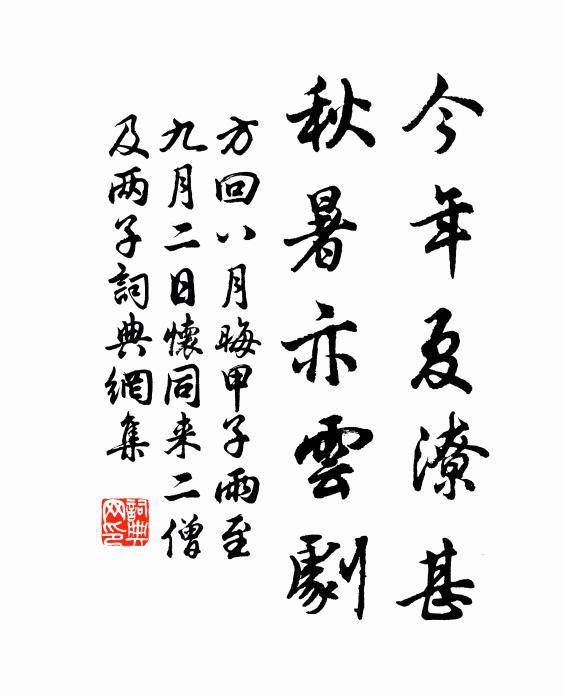 今年夏潦甚
秋暑亦雲劇
方回八月晦甲子雨至
九月二日懷同来二僧
及两子詞典網集
詞典
网印